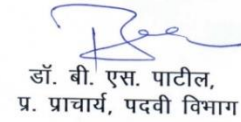 डॉ. बी. एस. पाटील,
प्र. प्राचार्य, पदवी विभाग